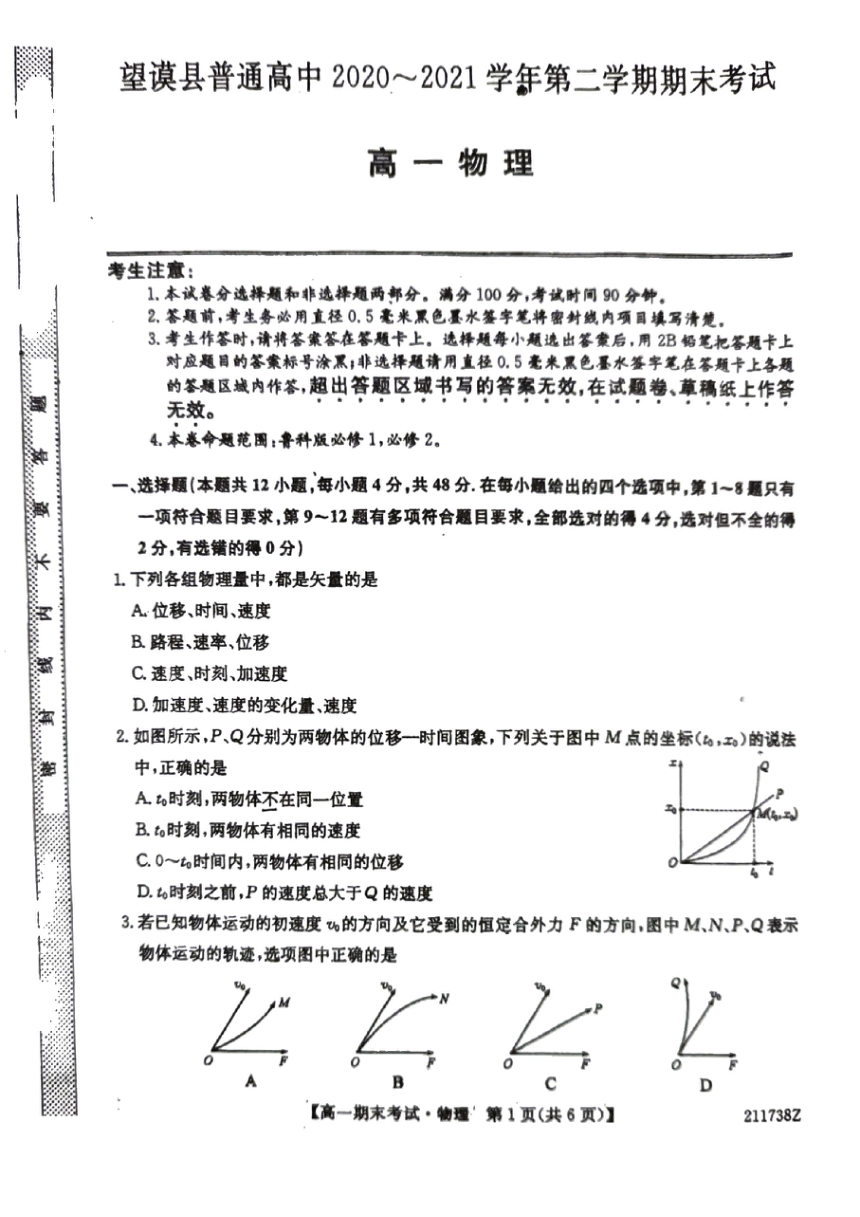 望谟县普通高中2020～2021学年第二学期期末考试
高一物理
考生注意:
1.本试卷分选择题和非选择题两部分。满分100分,考试时间90分钟。
2.答题前,考生务必用直径0.5毫米黑色墨水签字笔将密封线内项目填写清楚。
3.考生作答时,请将答案答在答题卡上。选择题每小题选出答案后,用2B铅笔把答题卡上
对应题目的答案标号涂黑;非选择题请用直径0.5毫米黑色墨水签字笔在答题卡上各题
的答题区域内作答,超出答题区域书写的答案无效,在试题卷、草稿纸上作答
无效。
4.本卷命题范围:鲁科版必修1,必修2。
一、选择题(本题共12小题,每小题4分,共48分.在每小题给出的四个选项中,第1~8题只有
一项符合题目要求,第9~12题有多项符合题目要求,全部选对的得4分,选对但不全的得
2分,有选错的得0分)
1.下列各组物理量中,都是矢量的是
A.位移、时间、速度
B.路程、速率、位移
C.速度、时刻、加速度
D.加速度、速度的变化量、速度
2.如图所示,P、Q分别为两物体的位移—时间图象,下列关于图中M点的坐标(t₀,x₀)的说法
中,正确的是
A.t₀时刻,两物体不在同一位置
B.t₀时刻,两物体有相同的速度
C.0~t₀时间内,两物体有相同的位移
D.t₀时刻之前,P的速度总大于Q的速度
x
Q
P
x₀
M(t₀,x₀)
O
t₀
t
3.若已知物体运动的初速度v₀的方向及它受到的恒定合外力F的方向,图中M、N、P、Q表示
物体运动的轨迹,选项图中正确的是
v₀ M O F
A
v₀ N O F
B
v₀ P O F
C
Q v₀ O F
D
【高一期末考试·物理 第1页(共6页)】
211738Z
密封线内不要答题